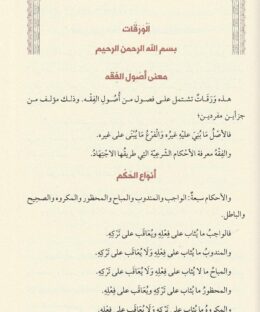 الورقات
بسم الله الرحمن الرحيم
معنى أصول الفقه
هذه وَرَقَاتٌ تشتمل على فصول من أُصُولِ الفِقْه. وذلك مؤلف من
جزأين مفردين؛
فالأصْلُ مَا بُنِيَ عَلَيْهِ غَيرُه، والْفَرْعُ مَا يُبْنَى على غيره.
والفِقْهُ معرفة الأحكام الشرعيَّة التي طريقُها الاجْتِهَادُ.
أنواع الحكم
والأحكام سبعةٌ: الواجب والمندوب والمباح والمحظور والمكروه والصحيح
والباطل.
فالواجبُ ما يُثاب على فِعْلِهِ ويُعَاقَب على تَرْكِهِ.
والمندوبُ ما يُثاب على فِعْلِهِ وَلَا يُعَاقَب على تَرْكِهِ.
والمباحُ مَا لا يُثاب على فِعْلِهِ ولا يُعاقَب على تَرْكِهِ.
والمحظورُ ما يُثاب على تَرْكِهِ ويُعَاقَب على فِعْلِهِ.
والمكروهُ ما يُثاب على تَرْكِهِ وَلَا يُعَاقَب على فِعْلِهِ.